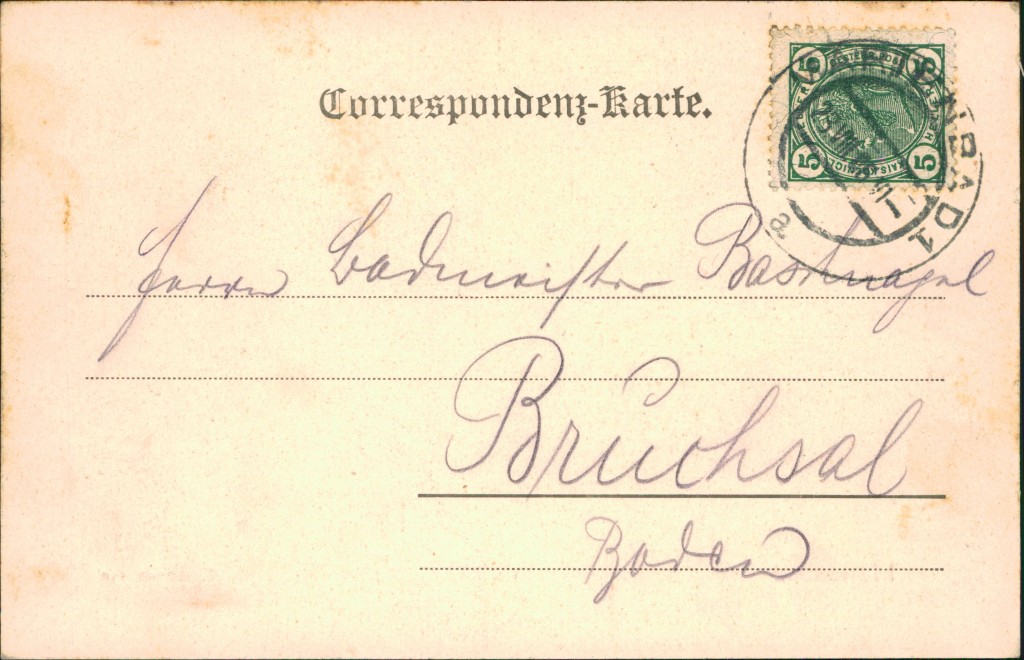 Correspondenz-Karte.
5 5
5 5
Herrn Bademeister Bastnagel
Bruchsal
Baden